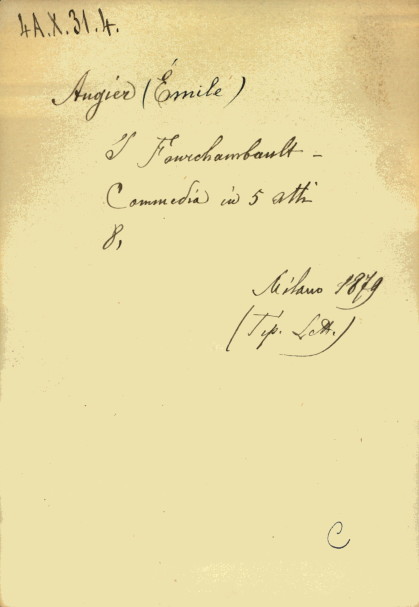 4A.X.31.4.
Augier (Émile)
I Fourchambault -
Commedia in 5 atti
8,
Milano 1879
(Tip. Lett.)
C